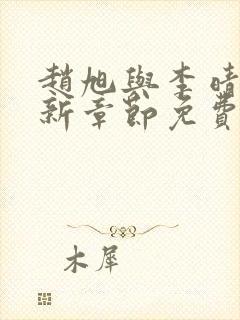 趙旭與李晴
新章節免費
木犀